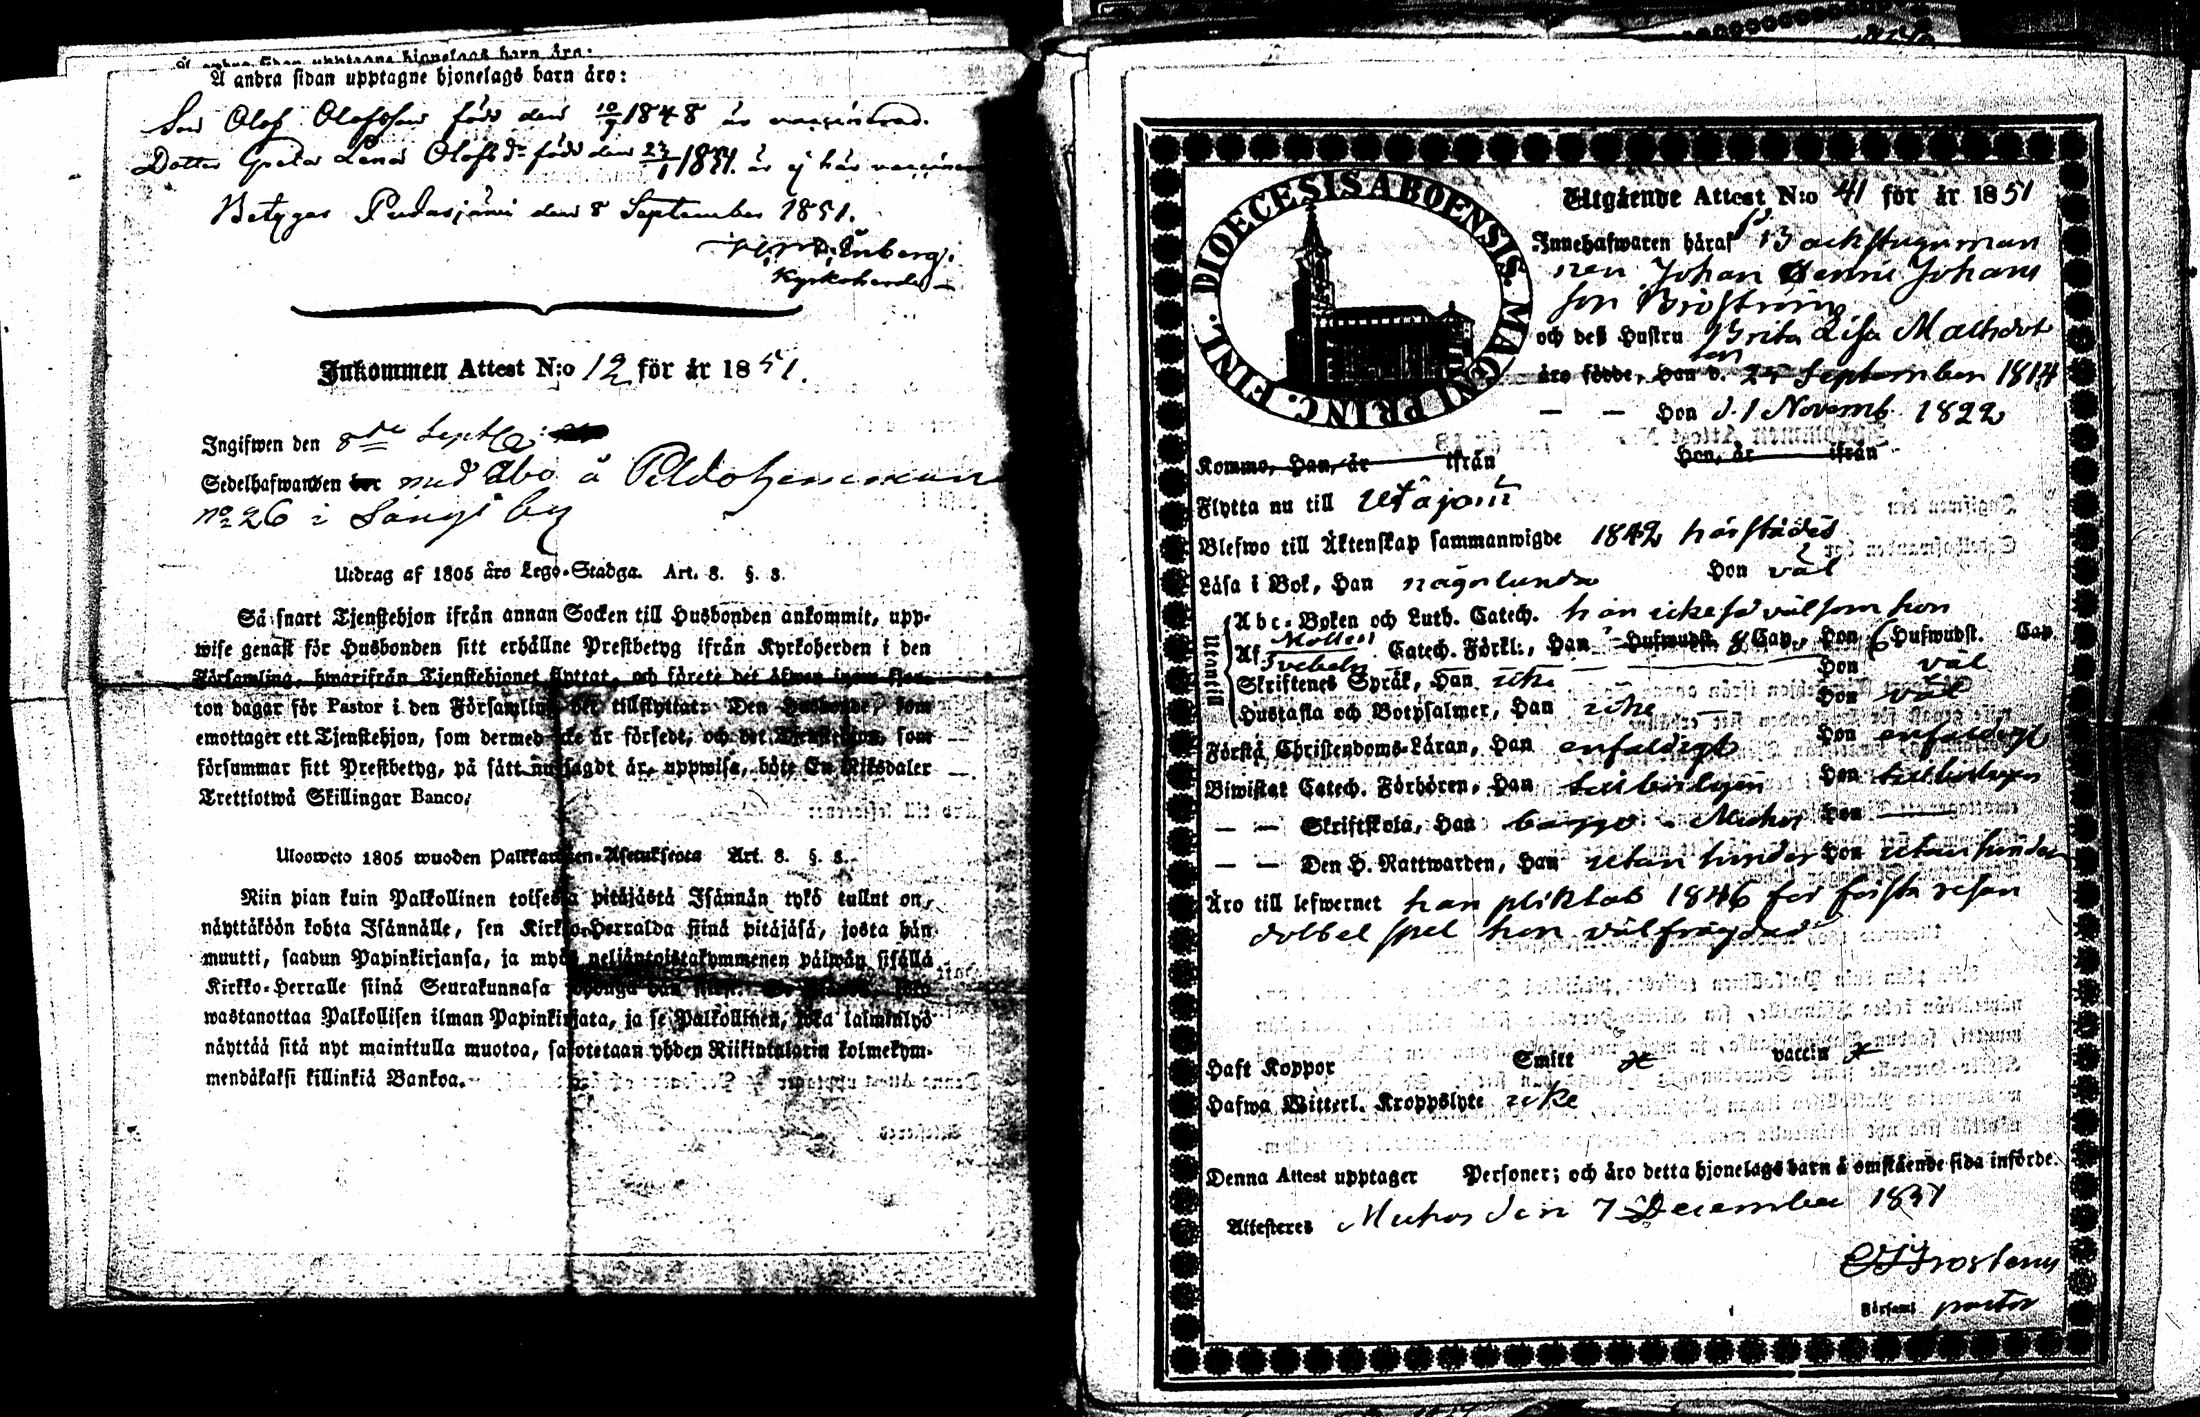 Å andra sidan upptagne hjonelags barn äro:
Å andra sidan upptagne hjonelags barn äro:
Son Olof Olofsson född den 10/9 1848 är vaccinerad.
Dotter Greta Lena Olofsdr född den 23/1 1851. är ej här vaccinerad
Betygar Pudasjärvi den 8 September 1851.
Kyrkoherde
Inkommen Attest N:o 12 för år 1851.
Ingifwen den 8de Sept
Sedelhafwanden bor med Åbo å Peldo hemman
no 26 i Sangi by
Utdrag af 1805 års Lego-Stadga. Art. 8. §. 8.
Så snart Tjenstehjon ifrån annan Socken till Husbonden ankommit, upp-
wise genast för Husbonden sitt erhållne Prestbetyg ifrån Kyrkoherden i den
Församling, hwarifrån Tjenstehjonet flyttat, och förete det äfwen inom fjor-
ton dagar för Pastor i den Församling det tillflyttat: Den Husbonde, som
emottager ett Tjenstehjon, som dermed icke är försedt, och det Tjenstehjon, som
försummar sitt Prestbetyg, på sätt nu sagdt är, uppwisa, böte En Riksdaler
Trettiotwå Skillingar Banco.
Ulosweto 1805 wuoden Palkkawäen-Asetuksesta Art. 8. §. 8.
Niin pian kuin Palkollinen toisesta pitäjästä Isännän tykö tullut on,
näyttäköön kohta Isännälle, sen Kirkko-Herralda siinä pitäjäsä, josta hän
muutti, saadun Papinkirjansa, ja myös neljäntoistakymmenen päiwän sisällä
Kirkko-Herralle siinä Seurakunnasa
wastanottaa Palkollisen ilman Papinkirjata, ja se Palkollinen, joka laiminlyö
näyttää sitä nyt mainitulla muotoa, sakotetaan yhden Riikintalarin kolmekym-
mendäkaksi killinkiä Bankoa.
DIOECESIS ABOENSIS. MAGNI PRINC. FINL.
Utgående Attest N:o 41 för år 1851
Innehafwaren häraf Backstuguman
nen Johan Henric Johans
son Broström
och deß Hustru Brita Lisa Mattsdot
ter
äro födde, Han d. 24 September 1814
— — Hon d. 1 Novemb. 1822
Kommo, Han, år ifrån Hon, år ifrån
Flytta nu till Utajärvi
Blefwo till Äktenskap sammanwigde 1842 härstädes
Läsa i Bok, Han någorlunda Hon väl
Utantill
Abc-Boken och Luth. Catech. han icke så väl som hon
Af Möllers Svebelii Catech. Förkl., Han Hufwudst. Cap., Hon 6 Hufwudst. Cap.
Skriftenes Språk, Han icke Hon väl
Hustafla och Botpsalmer, Han icke Hon väl
Förstå Christendoms-Läran, Han enfaldigt Hon enfaldigt
Biwistat Catech. Förhören, Han tillbörligen Hon tillbörligen
— — Skriftskola, Han begge i Muhos Hon
— — Den H. Nattwarden, Han utan hinder Hon utan hinder
Äro till lefwernet han pliktat 1846 för första resan
dobbel spel hon välfrägdad
Haft Koppor Smitt vaccin
Hafwa Witterl. Kroppslyte icke
Denna Attest upptager Personer; och äro detta hjonelags barn å omstående sida införde.
Attesteras Muhos den 7 December 1851
Frosterus
Församl. pastor